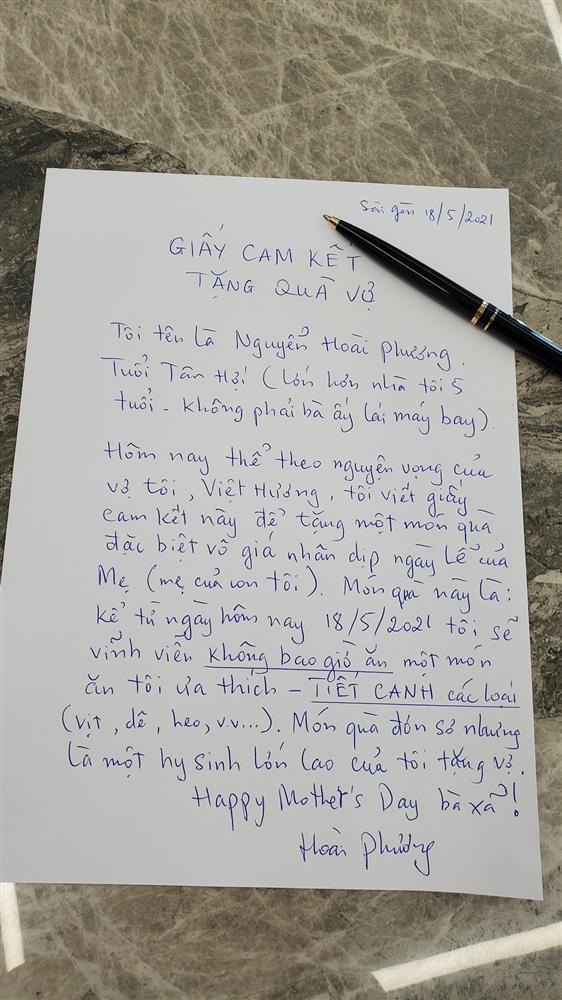 Sài gòn 18/5/2021
GIẤY CAM KẾT
TẶNG QUÀ VỢ
Tôi tên là Nguyễn Hoài Phương.
Tuổi Tân Hợi (lớn hơn nhà tôi 5
tuổi - không phải bà ấy lái máy bay).
Hôm nay thể theo nguyện vọng của
vợ tôi, Việt Hương, tôi viết giấy
cam kết này để tặng một món quà
đặc biệt vô giá nhân dịp ngày Lễ của
Mẹ (mẹ của con tôi). Món quà này là:
kể từ ngày hôm nay 18/5/2021 tôi sẽ
vĩnh viễn không bao giờ ăn một món
ăn tôi ưa thích - TIẾT CANH các loại
(vịt, dê, heo, v.v...). Món quà đơn sơ nhưng
là một hy sinh lớn lao của tôi tặng vợ.
Happy Mother's Day bà xã!
Hoài Phương